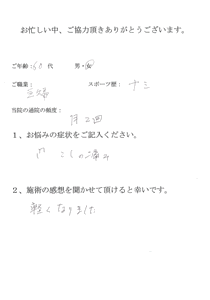 お忙しい中、ご協力頂きありがとうございます。
ご年齢：60代　男・女
ご職業：主婦　スポーツ歴：ナシ
当院の通院の頻度：
月2回
1、お悩みの症状をご記入ください。
こしの痛み
2、施術の感想を聞かせて頂けると幸いです。
軽くなりました